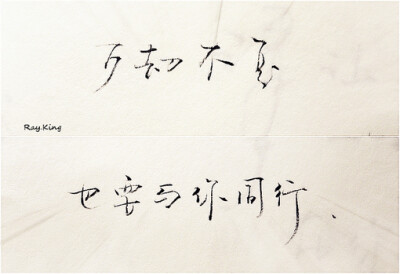 万劫不复
Ray.King
也要与你同行、